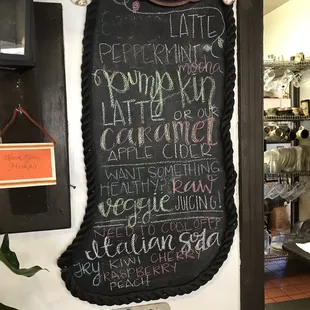 LATTE
PEPPERMINT
mocha
pumpkin
LATTE OR OUR
CARAMEL
APPLE CIDER
WANT SOMETHING
HEALTHY? RAW
veggie JUICING!
NEED TO COOL OFF?
Italian Soda
TRY KIWI CHERRY
RASPBERRY
PEACH